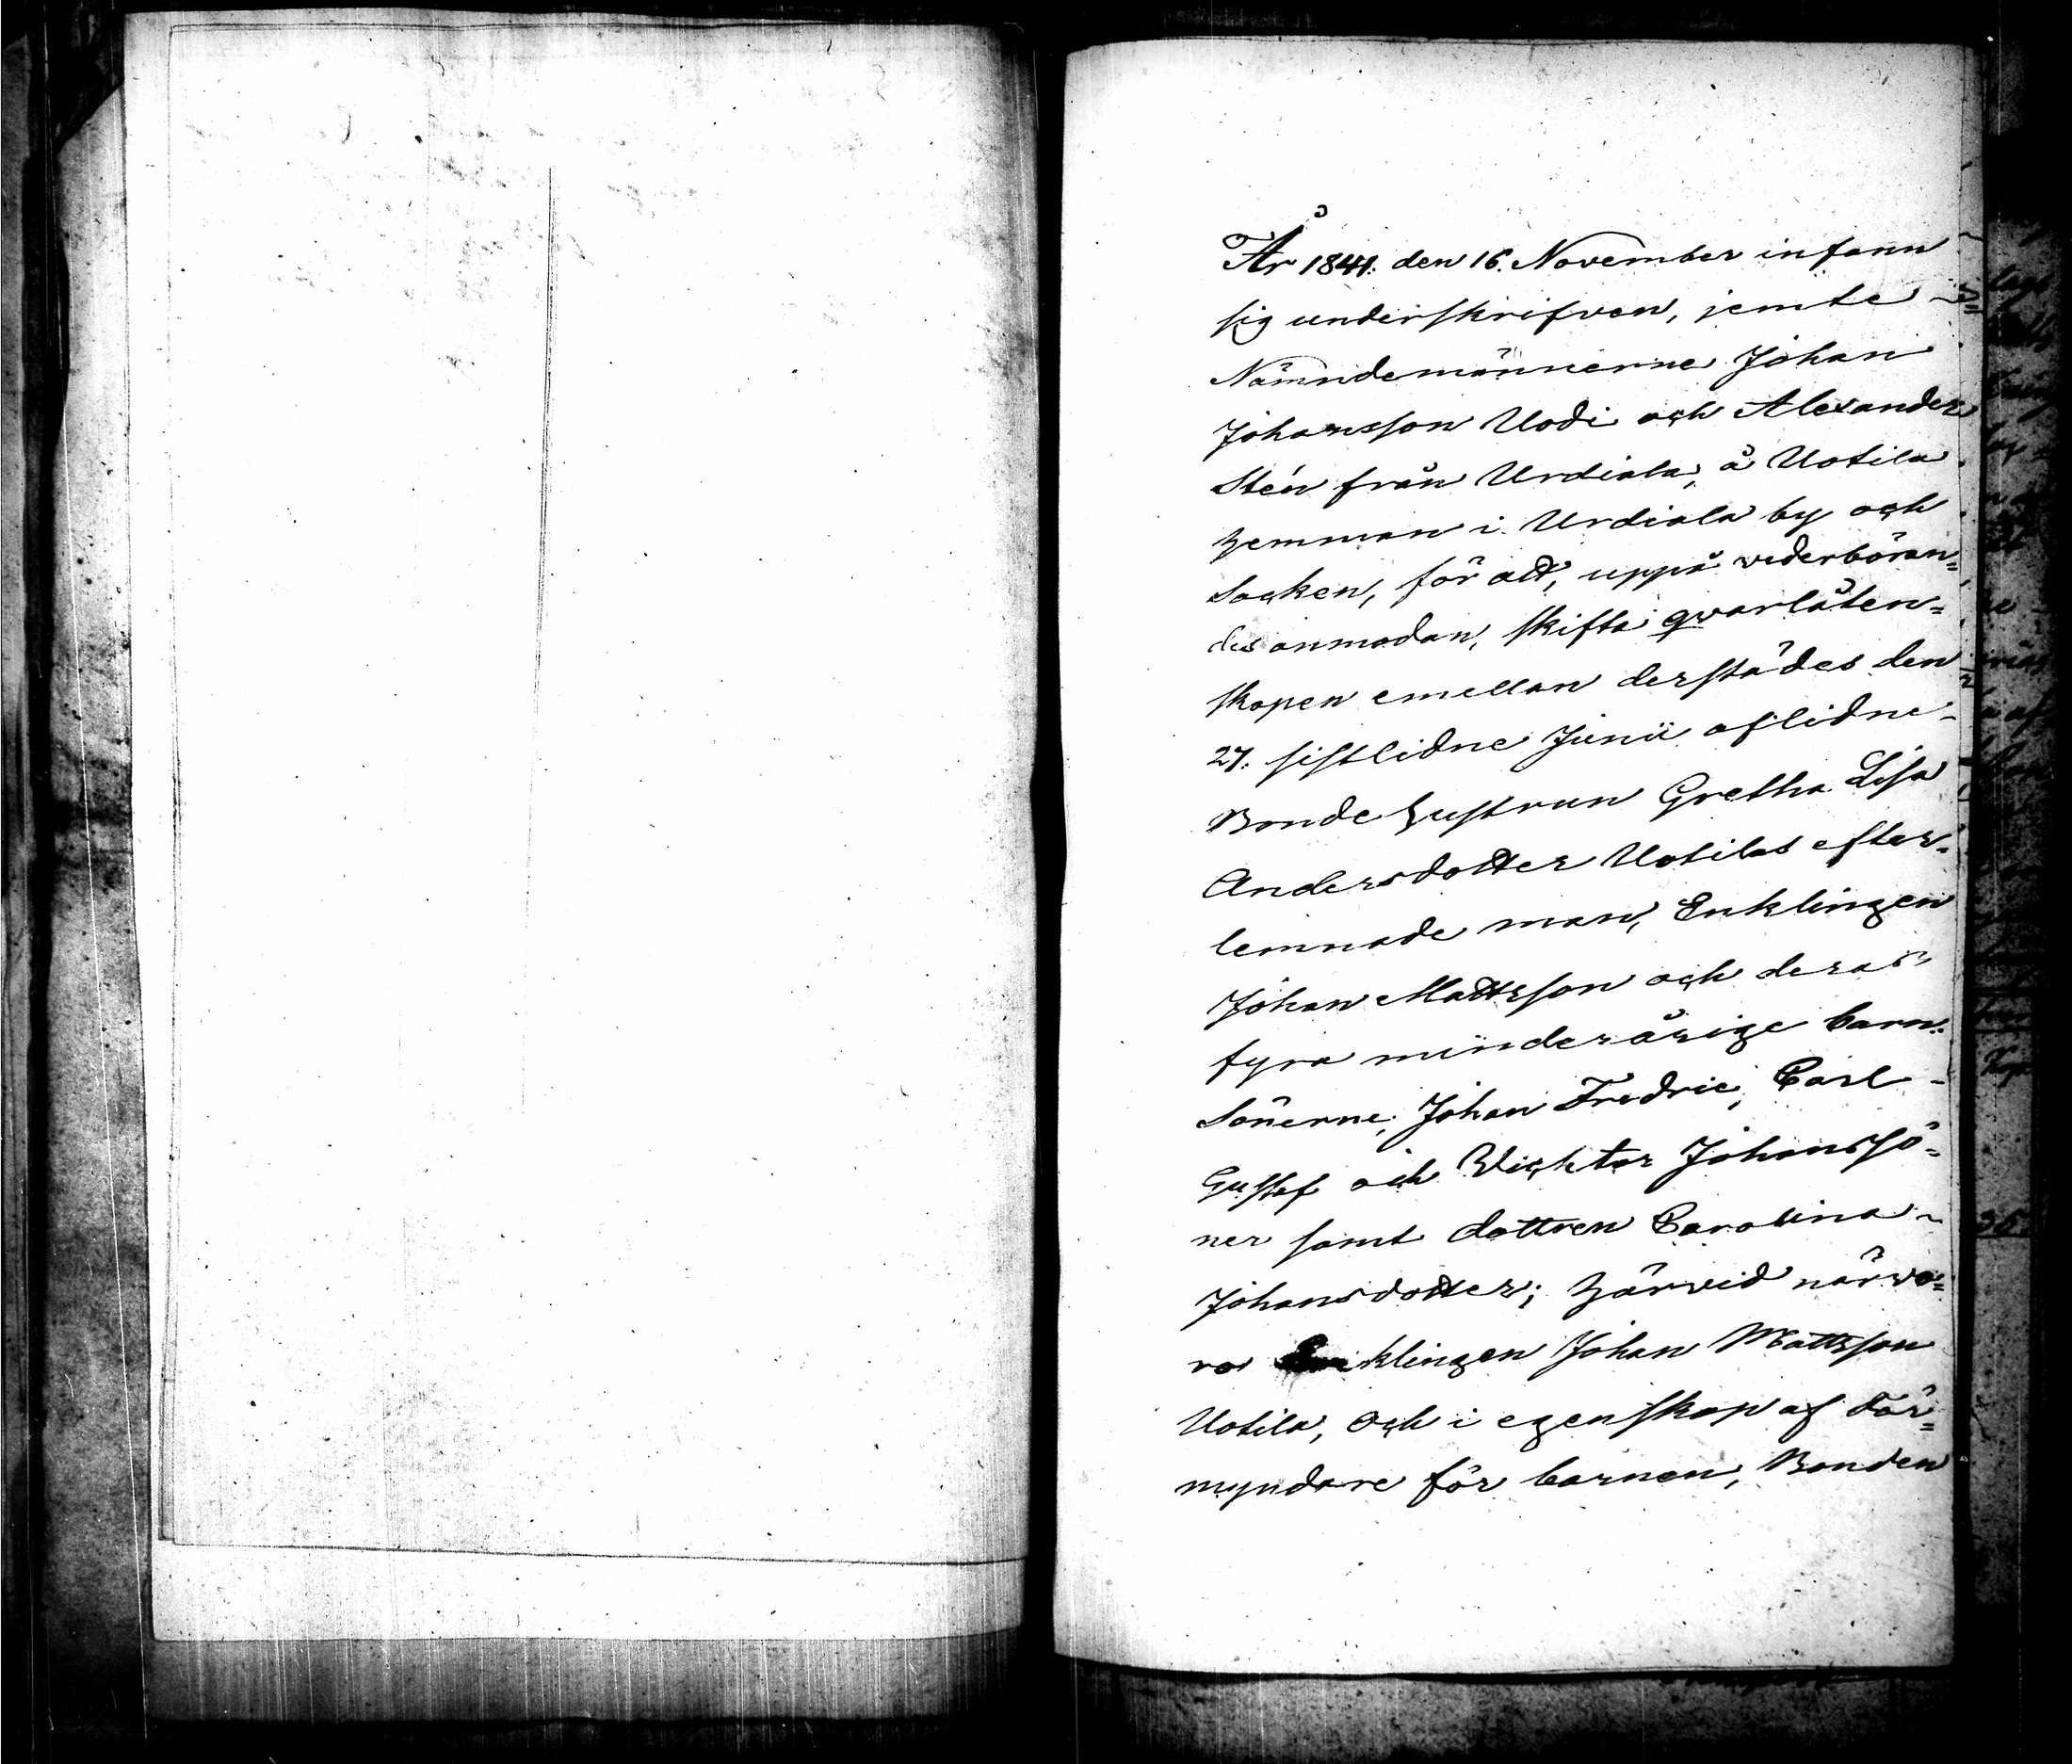 År 1841. den 16. November infann
sig underskrifven, jemte
Nämndemännerne Johan
Johansson Uodi och Alexander
Stén från Urdiala, å Uotila
hemman i Urdiala by och
Socken, för att, uppå vederböran=
des anmodan, skifta qvarlåten=
skapen emellan derstädes den
27. sistlidne Junii aflidne
Bonde hustrun Gretha Lisa
Andersdotter Uotilas efter=
lemnade man, Enklingen
Johan Mattsson och deras
fyra minderårige barn:
Sönerne, Johan Fredric, Carl
Gustaf och Wichtor Johanssö=
ner samt dottren Carolina
Johansdotter; härvid närva=
ro Enklingen Johan Mattsson
Uotila, och i egenskap af För=
myndare för barnen, Bonden